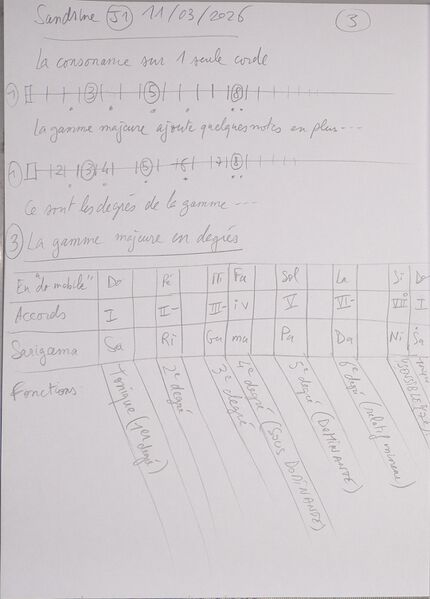 Sandrine J1 11/03/2026 3
La consonance sur 1 seule corde
1 3 5 8
La gamme majeure ajoute quelques notes en plus ---
1 2 3 4 5 6 7 8
Ce sont les degrés de la gamme ---
3 La gamme majeure en degrés
En "do mobile" Do Ré Mi Fa Sol La Si Do
Accords I II- III- iv V VI- VII° I
Sarigama Sa Ri Ga ma Pa Da Ni Sa
Fonctions
Tonique (1er degré)
2e degré
3e degré
4e degré (SOUS DOMINANTE)
5e degré (DOMINANTE)
6e degré (relatif mineur)
SENSIBLE